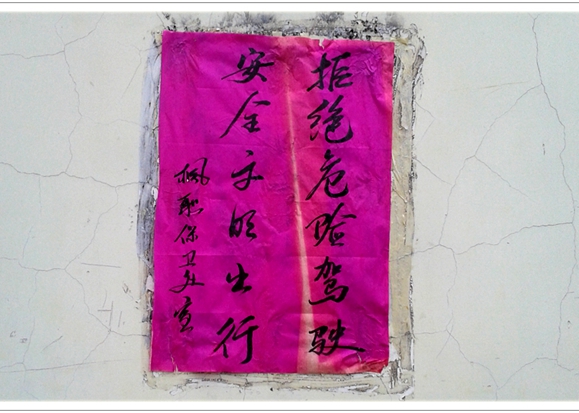 拒绝危险驾驶
安全文明出行
枫聖保卫处宣